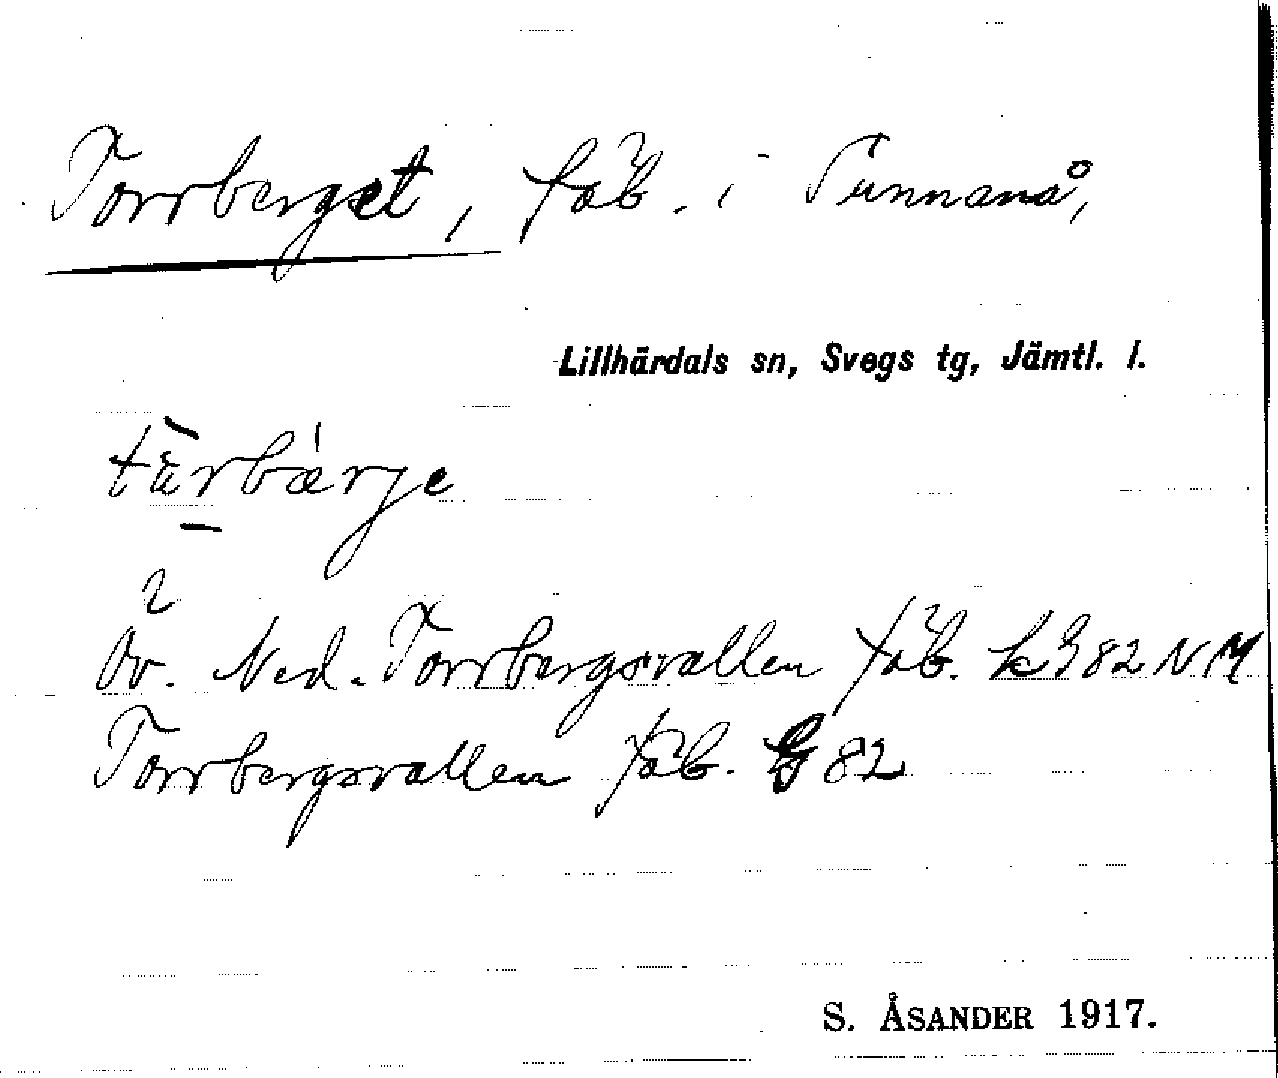 Torrberget, fäb. i Sunnanå,
Lillhärdals sn, Svegs tg, Jämtl. l.
tärbärje
Öv. Ned. Torrbergsvallen fäb. LG 82 NM
Torrbergsvallen fäb. G 82
S. ÅSANDER 1917.